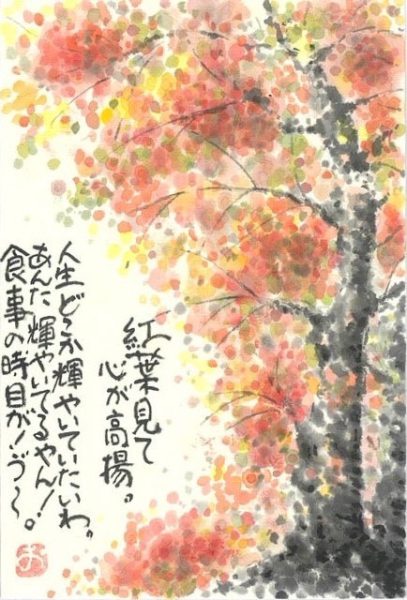 紅葉見て
心が高揚。
人生どこか輝やいていたいわ。
あんた輝やいてるやん!
食事の時目が!づ〜。
お